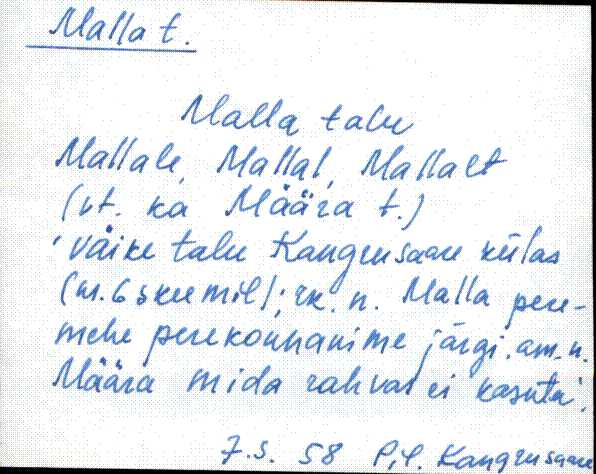 Malla t.
Malla talu
Mallale, Mallal, Mallalt
(vt. ka Määra t.)
'väike talu Kangrusaare külas
(nr. 6 skeemil); rk. n. Malla pere-
mehe perekonnanime järgi. am. n.
Määra mida rahvas ei kasuta'.
7.s. 58 Pil. Kangrusaare